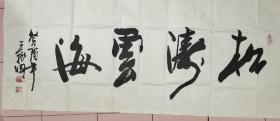 松涛雲海
癸酉年